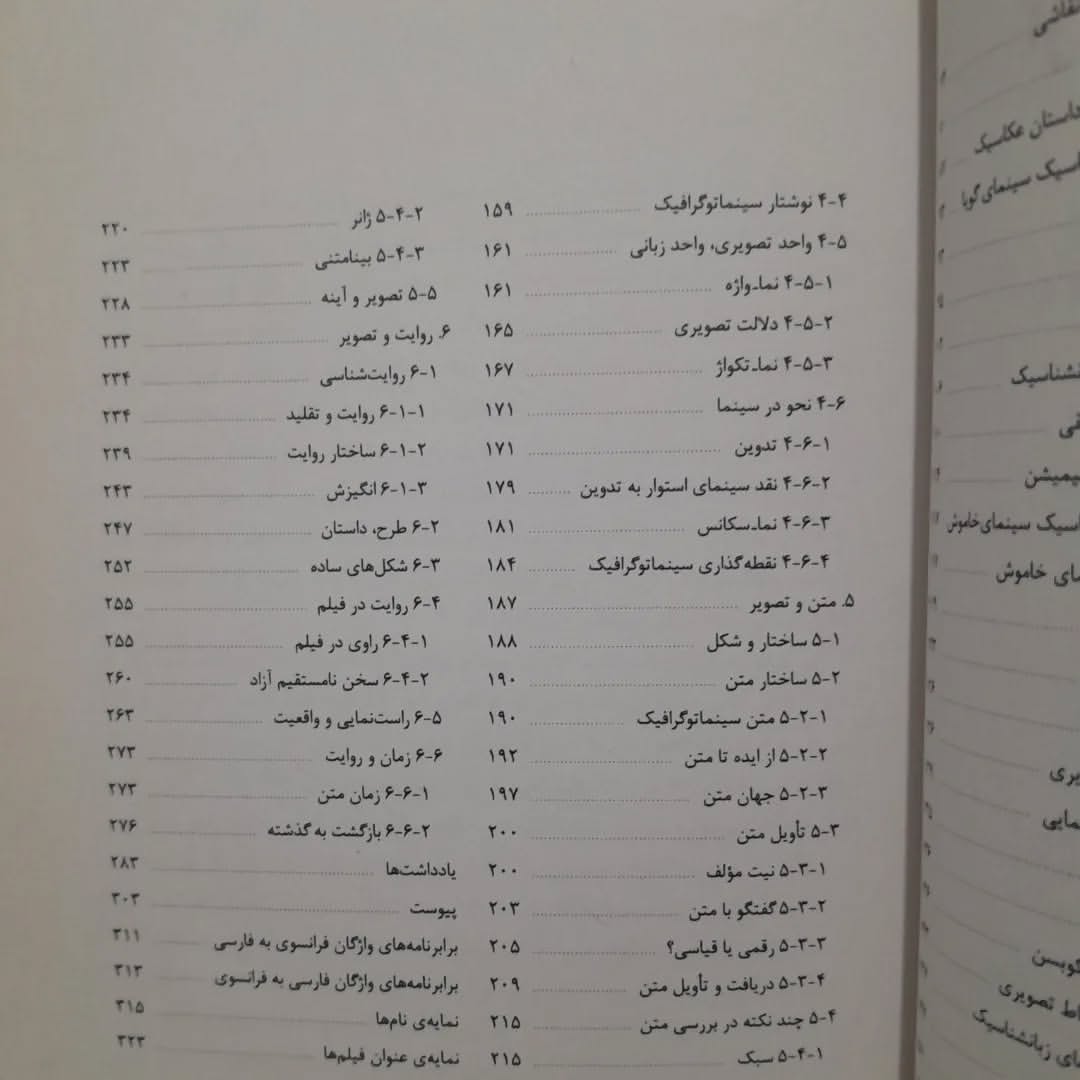 ۴-۴ نوشتار سینماتوگرافیک ۱۵۹
۴-۵ واحد تصویری، واحد زبانی ۱۶۱
۴-۵-۱ نما-واژه ۱۶۱
۴-۵-۲ دلالت تصویری ۱۶۵
۴-۵-۳ نما-تکواژ ۱۶۷
۴-۶ نحو در سینما ۱۷۱
۴-۶-۱ تدوین ۱۷۱
۴-۶-۲ نقد سینمای استوار به تدوین ۱۷۹
۴-۶-۳ نما-سکانس ۱۸۱
۴-۶-۴ نقطه‌گذاری سینماتوگرافیک ۱۸۴
۵. متن و تصویر ۱۸۷
۵-۱ ساختار و شکل ۱۸۸
۵-۲ ساختار متن ۱۹۰
۵-۲-۱ متن سینماتوگرافیک ۱۹۰
۵-۲-۲ از ایده تا متن ۱۹۲
۵-۲-۳ جهان متن ۱۹۷
۵-۳ تأویل متن ۲۰۰
۵-۳-۱ نیت مؤلف ۲۰۰
۵-۳-۲ گفتگو با متن ۲۰۳
۵-۳-۳ رقمی یا قیاسی؟ ۲۰۵
۵-۳-۴ دریافت و تأویل متن ۲۰۹
۵-۴ چند نکته در بررسی متن ۲۱۵
۵-۴-۱ سبک ۲۱۵
۵-۴-۲ ژانر ۲۲۰
۵-۴-۳ بینامتنی ۲۲۳
۵-۵ تصویر و آینه ۲۲۸
۶. روایت و تصویر ۲۳۳
۶-۱ روایت‌شناسی ۲۳۴
۶-۱-۱ روایت و تقلید ۲۳۴
۶-۱-۲ ساختار روایت ۲۳۹
۶-۱-۳ انگیزش ۲۴۳
۶-۲ طرح، داستان ۲۴۷
۶-۳ شکل‌های ساده ۲۵۲
۶-۴ روایت در فیلم ۲۵۵
۶-۴-۱ راوی در فیلم ۲۵۵
۶-۴-۲ سخن نامستقیم آزاد ۲۶۰
۶-۵ راست‌نمایی و واقعیت ۲۶۳
۶-۶ زمان و روایت ۲۷۳
۶-۶-۱ زمان متن ۲۷۳
۶-۶-۲ بازگشت به گذشته ۲۷۶
یادداشت‌ها ۲۸۳
پیوست ۳۰۳
برابرنامه‌های واژگان فرانسوی به فارسی ۳۱۱
برابرنامه‌های واژگان فارسی به فرانسوی ۳۱۳
نمایه‌ی نام‌ها ۳۱۵
نمایه‌ی عنوان فیلم‌ها ۳۲۳
داستان عکاسیک
سینمای گویا
سینمای خاموش
خاموش
تصویری
زبانشناسیک